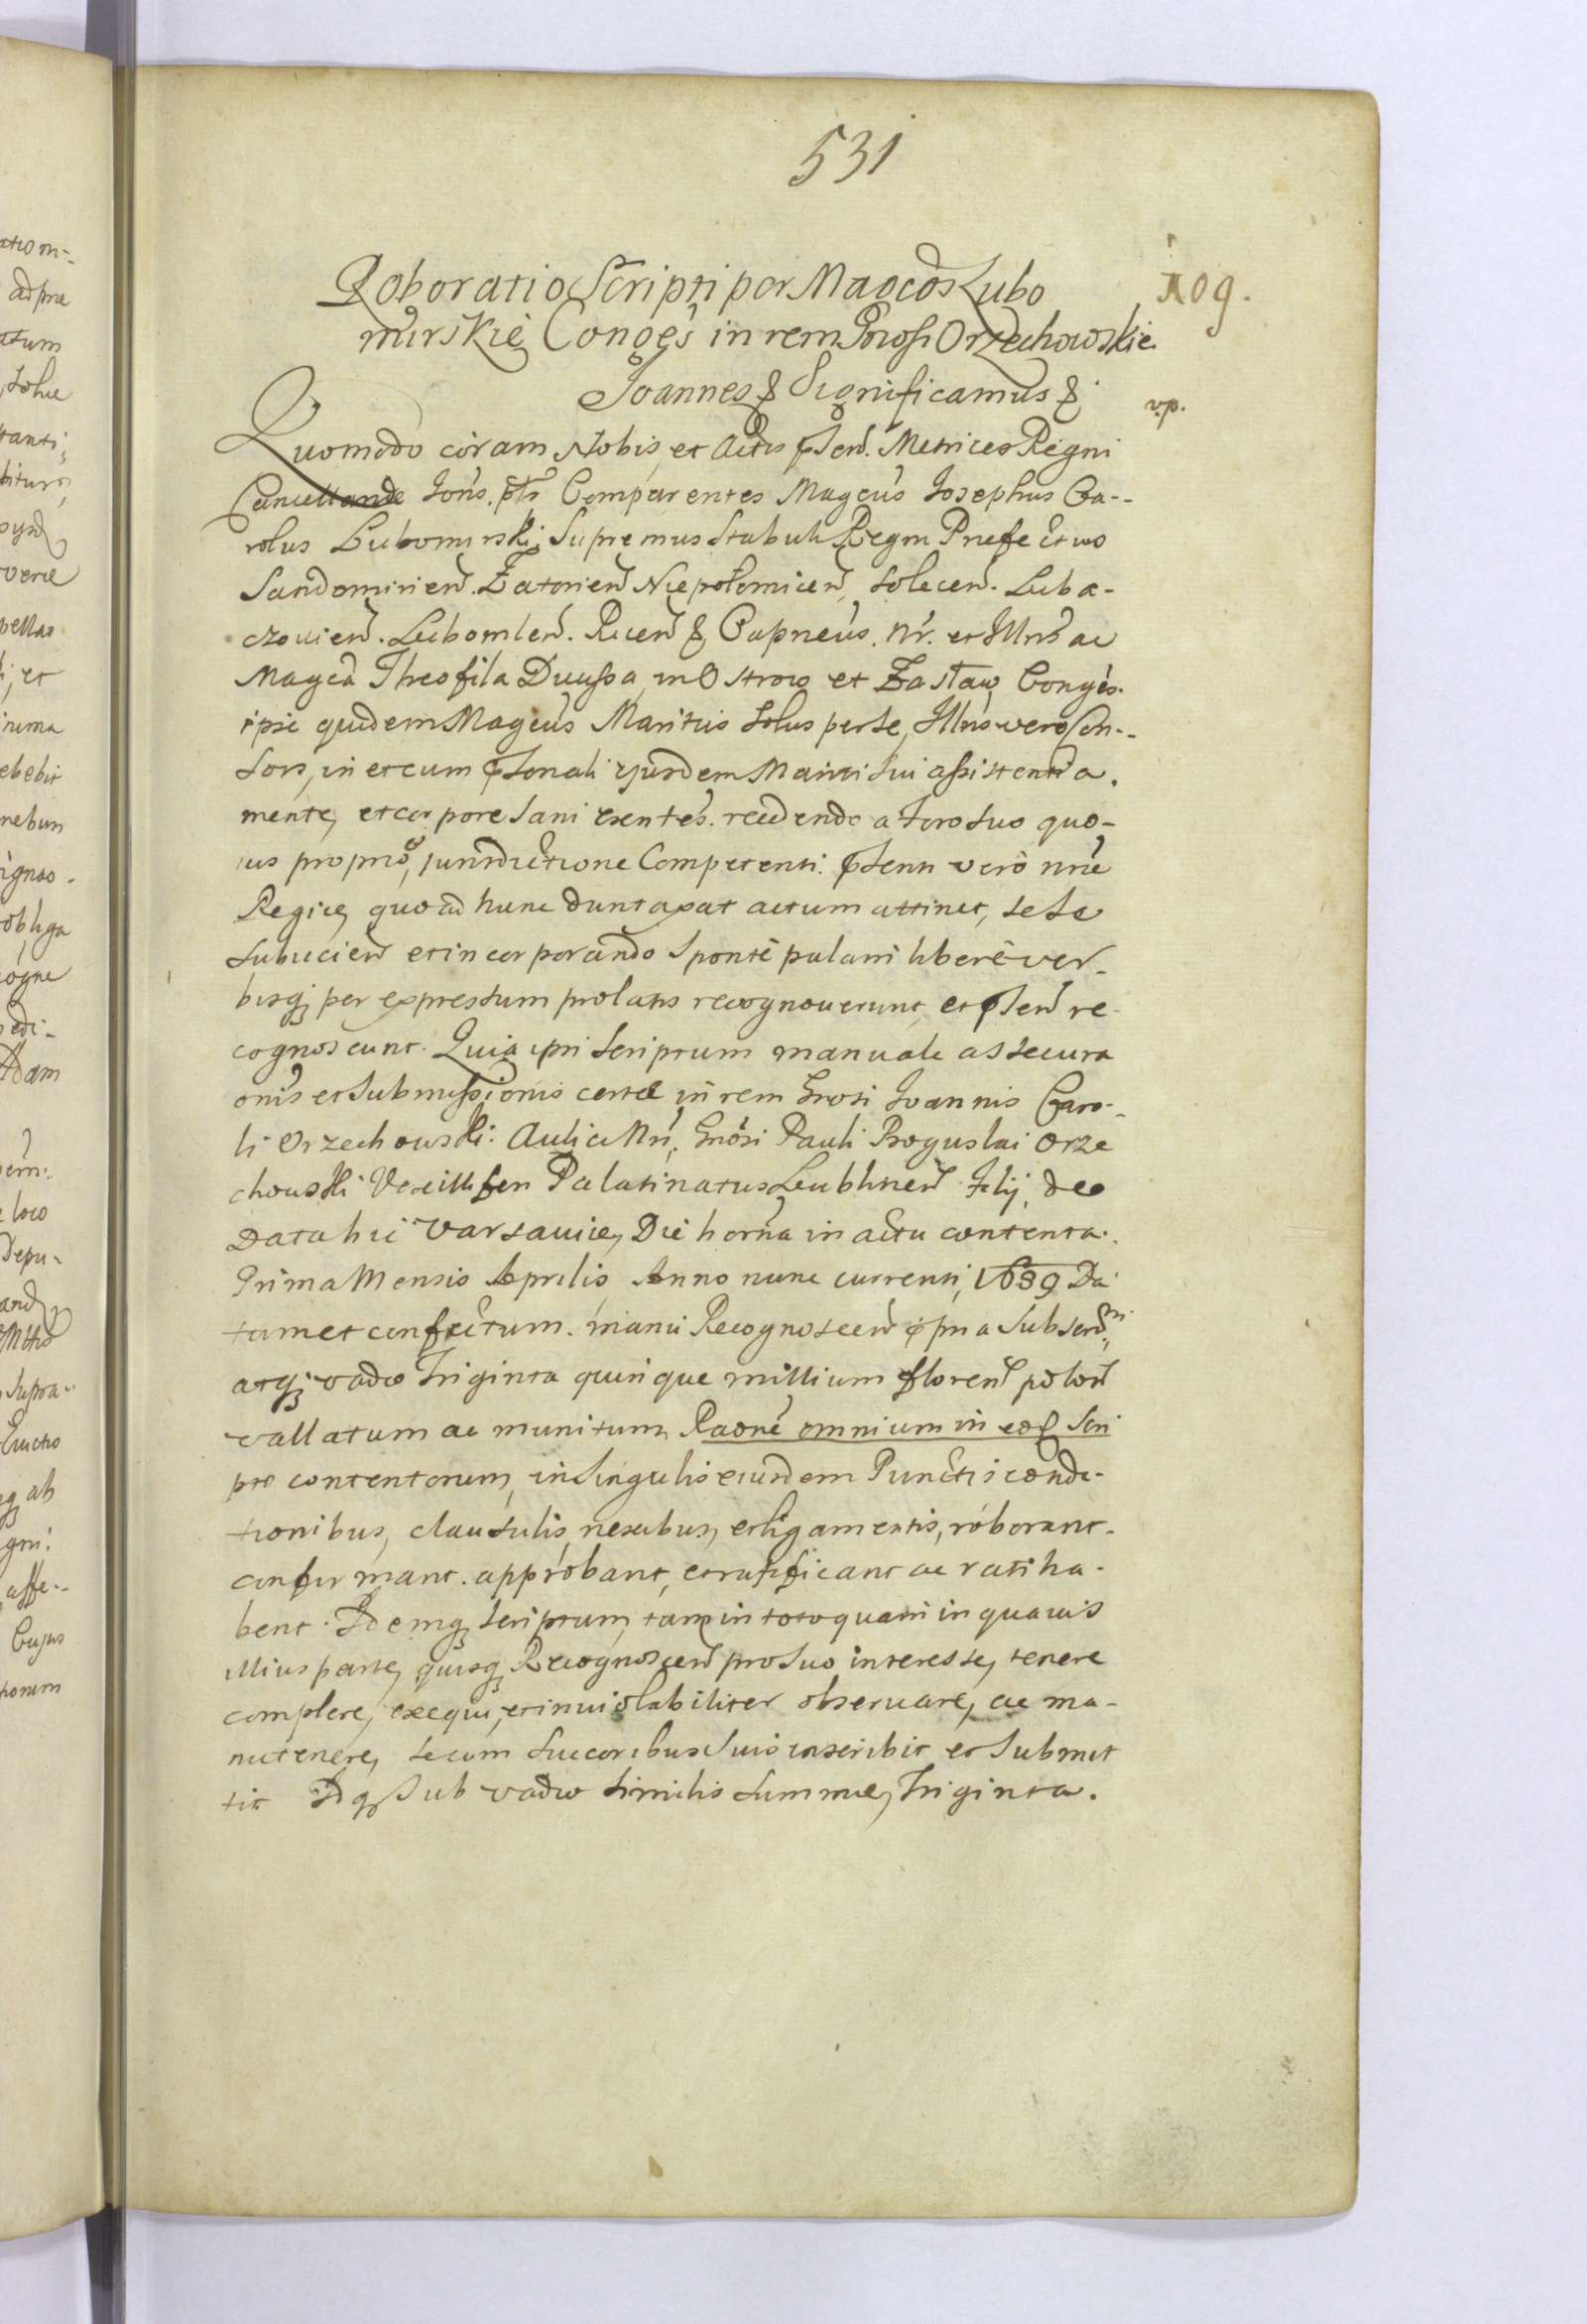 531
Roboratio Scripti per Magcos Lubo
mirskie Conges in rem Grosi Orzechowskie
109.
Joannes & Significamus &
v.p.
Quomodo coram Nobis, et Actis pnsen. Metrices Regni
Cancellariae Jons. pts Comparentes Magcus Josephus Ca-
rolus Lubomirski, Supremus Stabuli Regni Praefectus
Sandomirien. Zatorien Niepołomicen, Solecen. Luba-
czovien. Lubomlen. Ricen & Capneus. Nr. et Illris ac
Magca Theofila Ducissa, in Ostrow et Zasław Conges.
ipse quidem Magcus Maritus Solus per se, Illris vero Con-
sors, in et cum psonali ejusdem Mariti sui assistentia.
mente, et corpore sani exentes. recedendo a foro suo quo-
vis proprio, jurisdictione Competenti. pnsenti vero nrae
Regiae, quo ad hunc duntaxat actum attinet, sese
subiicien et incorporando Sponte palam libere ver-
bisq per expressum prolatis recognoverunt, et pnsen re-
cognoscunt. Quia ipsi Scriptum manuale assecura
onis et Submissionis certae in rem Grosi Joannis Caro-
li Orzechowski. Aulici Nri, Gnosi Pauli Boguslai Orze
chowski Vexillifen Palatinatus Leublinen filij, de
Data hic Varsaviae, Die horna in actu contenta.
Prima Mensis Aprilis, Anno nunc currenti, 1689 Da
tum et confectum. manu Recognoscen ppria Subscrm
atq vadio Triginta quinque millium floren polon
vallatum ac munitum, Raone omnium in eod Scri
pto contentorum, in Singulis eiusdem Punctis condi-
tionibus, clausulis, nexibus, et ligamentis, roborant.
confirmant. approbant, et ratificant ac ratiha-
bent. Idemq Scriptum, tam in toto quam in quavis
illius parte, quisq Recognoscen pro Suo interesse, tenere
complere, exequi, et inviolabiliter observare, ac ma-
nutenere, secum Succoribus Suis inscribit et Submit
tit Idq Sub vadio Similis Summae, Triginta.